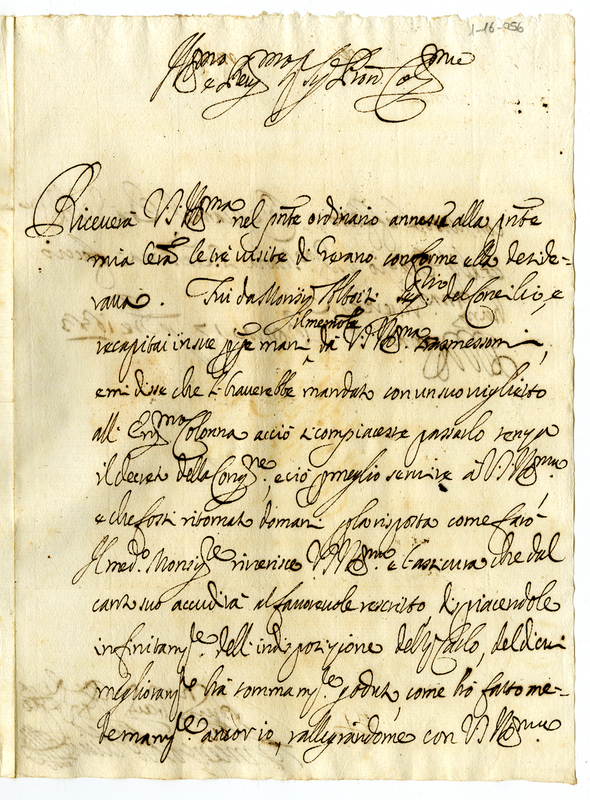 1-16-056
Ill.mo e Rev.mo Sig.re
Riceverà V.S. Ill.ma nel pñte ordinario annesse alla pñte
mia let.ra le tre visite di Gerano conforme ella deside=
rava. Fui da Monsig.r Seg.rio del Concilio, e
il memoriale
recapitai in sue pp.e mani da V.S. Ill.ma trasmessomi,
e mi disse che l'haverebbe mandato con un suo viglietto
all' Em.mo Colonna acciò si compiacesse passarlo senza
il decreto della Cong.ne, e ciò p meglio servire a V.S. Ill.ma
e che fossi ritornato domani p la risposta come farò
Il med.o Monsig.re riverisce V.S. Ill.ma e l'assicura che dal
canto suo accudirà al favorevole rescritto dispiacendole
infinitam.te dell' indisposizione del Sig. Carlo, del di cui
miglioram.to hà sommam.te goduto, come hò fatto me=
demam.te ancor io, rallegrandome con V.S. Ill.ma